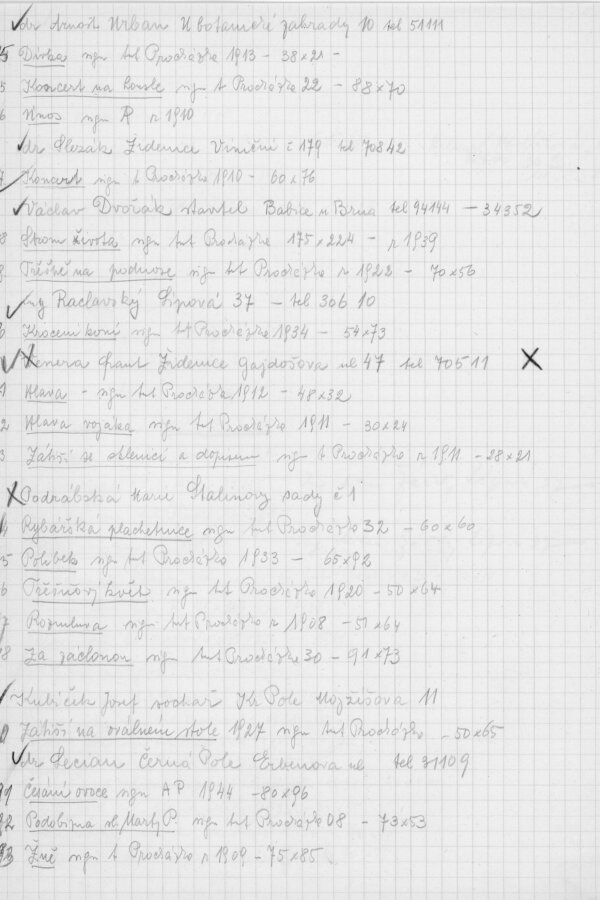 dr Arnošt Urban U botanické zahrady 10 tel 51111
5 Dívka sign Ant Procházka 1913 - 38x21 -
5 Koncert na sign A Procházka 22 - 88x70
6 Únos sign P r 1910
dr Slezák Židenice Viniční č 179 tel 70842
7 Koncert sign A Procházka 1910 - 60x76
Václav Dvořák stavitel Babice u Brna tel 94144 - 34352
8 Strom života sign Ant Procházka 175x224 - r 1939
9 na podnose sign Ant Procházka r 1922 - 70x56
ing Raclavský Lipová 37 - tel 306 10
0 Krocení koní sign Ant Procházka 1934 - 54x73
Venera Frant Židenice Gajdošova ul 47 tel 70511 X
1 Hlava - sign Ant Procházka 1912 - 48x32
2 Hlava vojáka sign Ant Procházka 1911 - 30x24
3 Zátiší se sklenicí a dopisem sign A Procházka r 1911 - 28x21
X Podrábská Marie Stalinovy sady č 1
4 Rybářská plachetnice sign Ant Procházka 32 - 60x60
5 Polibek sign Ant Procházka 1933 - 65x92
6 Třešňový květ sign Ant Procházka 1920 - 50x64
7 Rozmluva sign Ant Procházka r 1908 - 51x64
8 Za záclonou sign Ant Procházka 30 - 91x73
Kubíček Josef sochař Kr Pole Mojžíšova 11
0 Zátiší na oválném stole 1927 sign Ant Procházka - 50x65
dr Lecian Černá Pole Erbenova ul tel 31109
91 Česání ovoce sign AP 1944 - 80x96
92 Podobizna sl. Mart P. sign Ant Procházka 08 - 73x53
93 Žně sign A Procházka r 1909 - 75x85